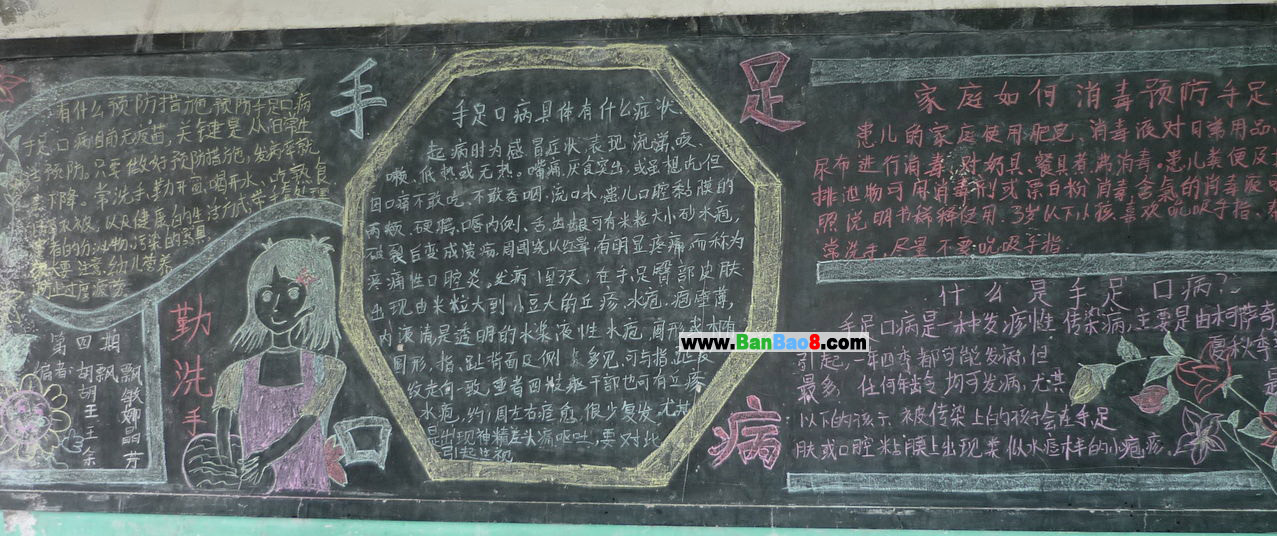 有什么预防措施,预防手足口病
手足口病目前无疫苗,关键是从日常生
活预防。只要做好预防措施,发病率就
会下降。常洗手,勤开窗,喝开水、吃熟食
衣被,以及健康的生活方式,
者的分泌物,污染的
注意幼儿营养
防止过度疲劳
第四期
编者:胡飘飘
胡
王
王晶
余芳
勤洗手
手
足
口
病
手足口病具体有什么症状
起病时为感冒症状,表现流涕、咳
嗽、低热或无热。嘴痛、厌食突出,或虽想吃但
因口痛不敢吃、不敢吞咽、流口水,患儿口腔黏膜的
两颊、硬腭、唇内侧、舌、齿龈可有米粒大小砂水疱,
破裂后变成溃疡,周围绕以红晕,有明显疼痛,而称为
疼痛性口腔炎。发病 在手足臀部皮肤
出现由米粒大到小豆大的丘疹、水疱、疱壁薄,
内液清是透明的水浆液性水疱,
圆形,指、趾背面及侧 多见,可与指、趾皮
纹走向一致,重者四肢躯干部也可有丘疹
、水疱,约1周左右痊愈,很少复发,尤其
是出现神精差、头痛、呕吐,要对此
引起注视
家庭如何消毒预防手足
患儿的家庭使用肥皂、消毒液对日常用品、
尿布进行消毒,对奶具、餐具煮沸消毒。患儿粪便及
排泄物可用消毒剂或漂白粉消毒含氯的消毒液
照说明书稀释使用。3岁以下小孩喜欢吮吸手指,
常洗手,尽量不要吮吸手指
什么是手足口病?
手足口病是一种发疹性传染病,主要是由柯萨奇
引起,一年四季都可能发病,但 夏秋季
最多,任何年龄均可发病,尤其 是
以下的孩子,被传染上的孩子会在手足
肤或口腔粘膜上出现类似水痘样的小疱疹。
www.BanBao8.com